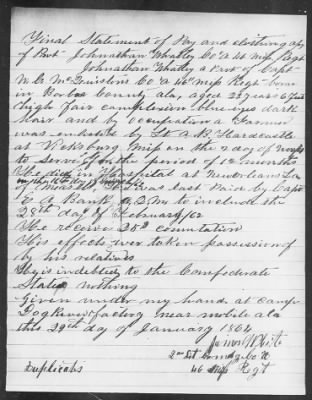 Final Statement of Pay and clothing a/c
of Prvt Johnathan Whatley Co "A" 46 Miss Regt
Johnathan Whatley a Pvt of Capt
W. C. McQuiston Co "A" 46th Miss Regt born
in County ala, aged 22 years 6 feet
high Fair complexion blue eyes dark
hair and by occupation a Farmer
was enlisted by Lt A. R. Hardcastle
at Vicksburg Miss on the day of
to serve for the period of 12 months
He died in Hospital at New Orleans La
on the day of
He was last Paid by Capt
E A Banks A Q M to include the
28th day of February /62
He receive 25$ commutation
His effects wer taken possession of
by his relatives
He is indebted to the Confederate
States nothing
Given under my hand at camp
Dog River factory near mobile ala
this 29th day of January 1864
James White
2nd Lt comdg co "A"
46 Miss Regt
Duplicate